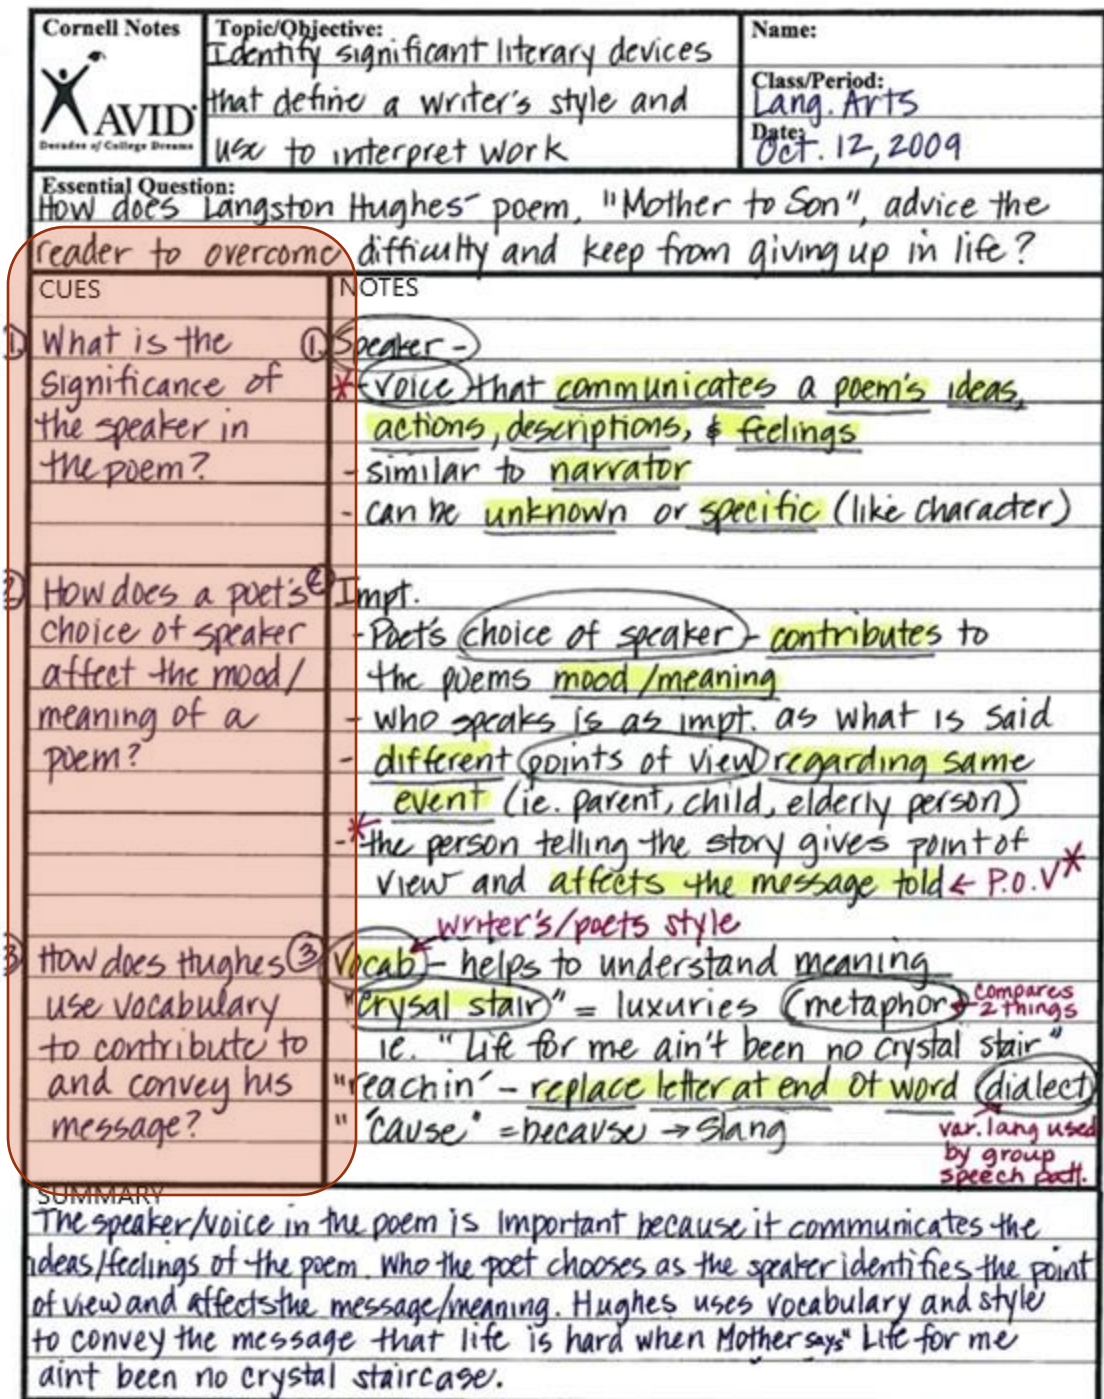 Cornell Notes
AVID
Decades of College Dreams
Topic/Objective:
Identify significant literary devices
that define a writer's style and
use to interpret work
Name:
Class/Period:
Lang. Arts
Date:
Oct. 12, 2009
Essential Question:
How does Langston Hughes' poem, "Mother to Son", advice the
reader to overcome difficulty and keep from giving up in life?
CUES
① What is the
significance of
the speaker in
the poem?
② How does a poet's
choice of speaker
affect the mood/
meaning of a
poem?
③ How does Hughes
use vocabulary
to contribute to
and convey his
message?
NOTES
① Speaker -
* - voice that communicates a poem's ideas,
actions, descriptions, & feelings
- similar to narrator
- can be unknown or specific (like character)
② Impt.
- Poet's choice of speaker - contributes to
the poems mood/meaning
- who speaks is as impt. as what is said
- different points of view regarding same
event (ie. parent, child, elderly person)
- * the person telling the story gives point of
view and affects the message told ← P.O.V *
writer's/poets style
③ Vocab - helps to understand meaning
"crysal stair" = luxuries (metaphor) ← compares
2 things
ie. "Life for me ain't been no crystal stair"
"reachin' - replace letter at end of word (dialect)
" 'cause' = because → slang
var. lang used
by group
speech patt.
SUMMARY
The speaker/voice in the poem is important because it communicates the
ideas/feelings of the poem. Who the poet chooses as the speaker identifies the point
of view and affects the message/meaning. Hughes uses vocabulary and style
to convey the message that life is hard when Mother says" Life for me
aint been no crystal staircase.